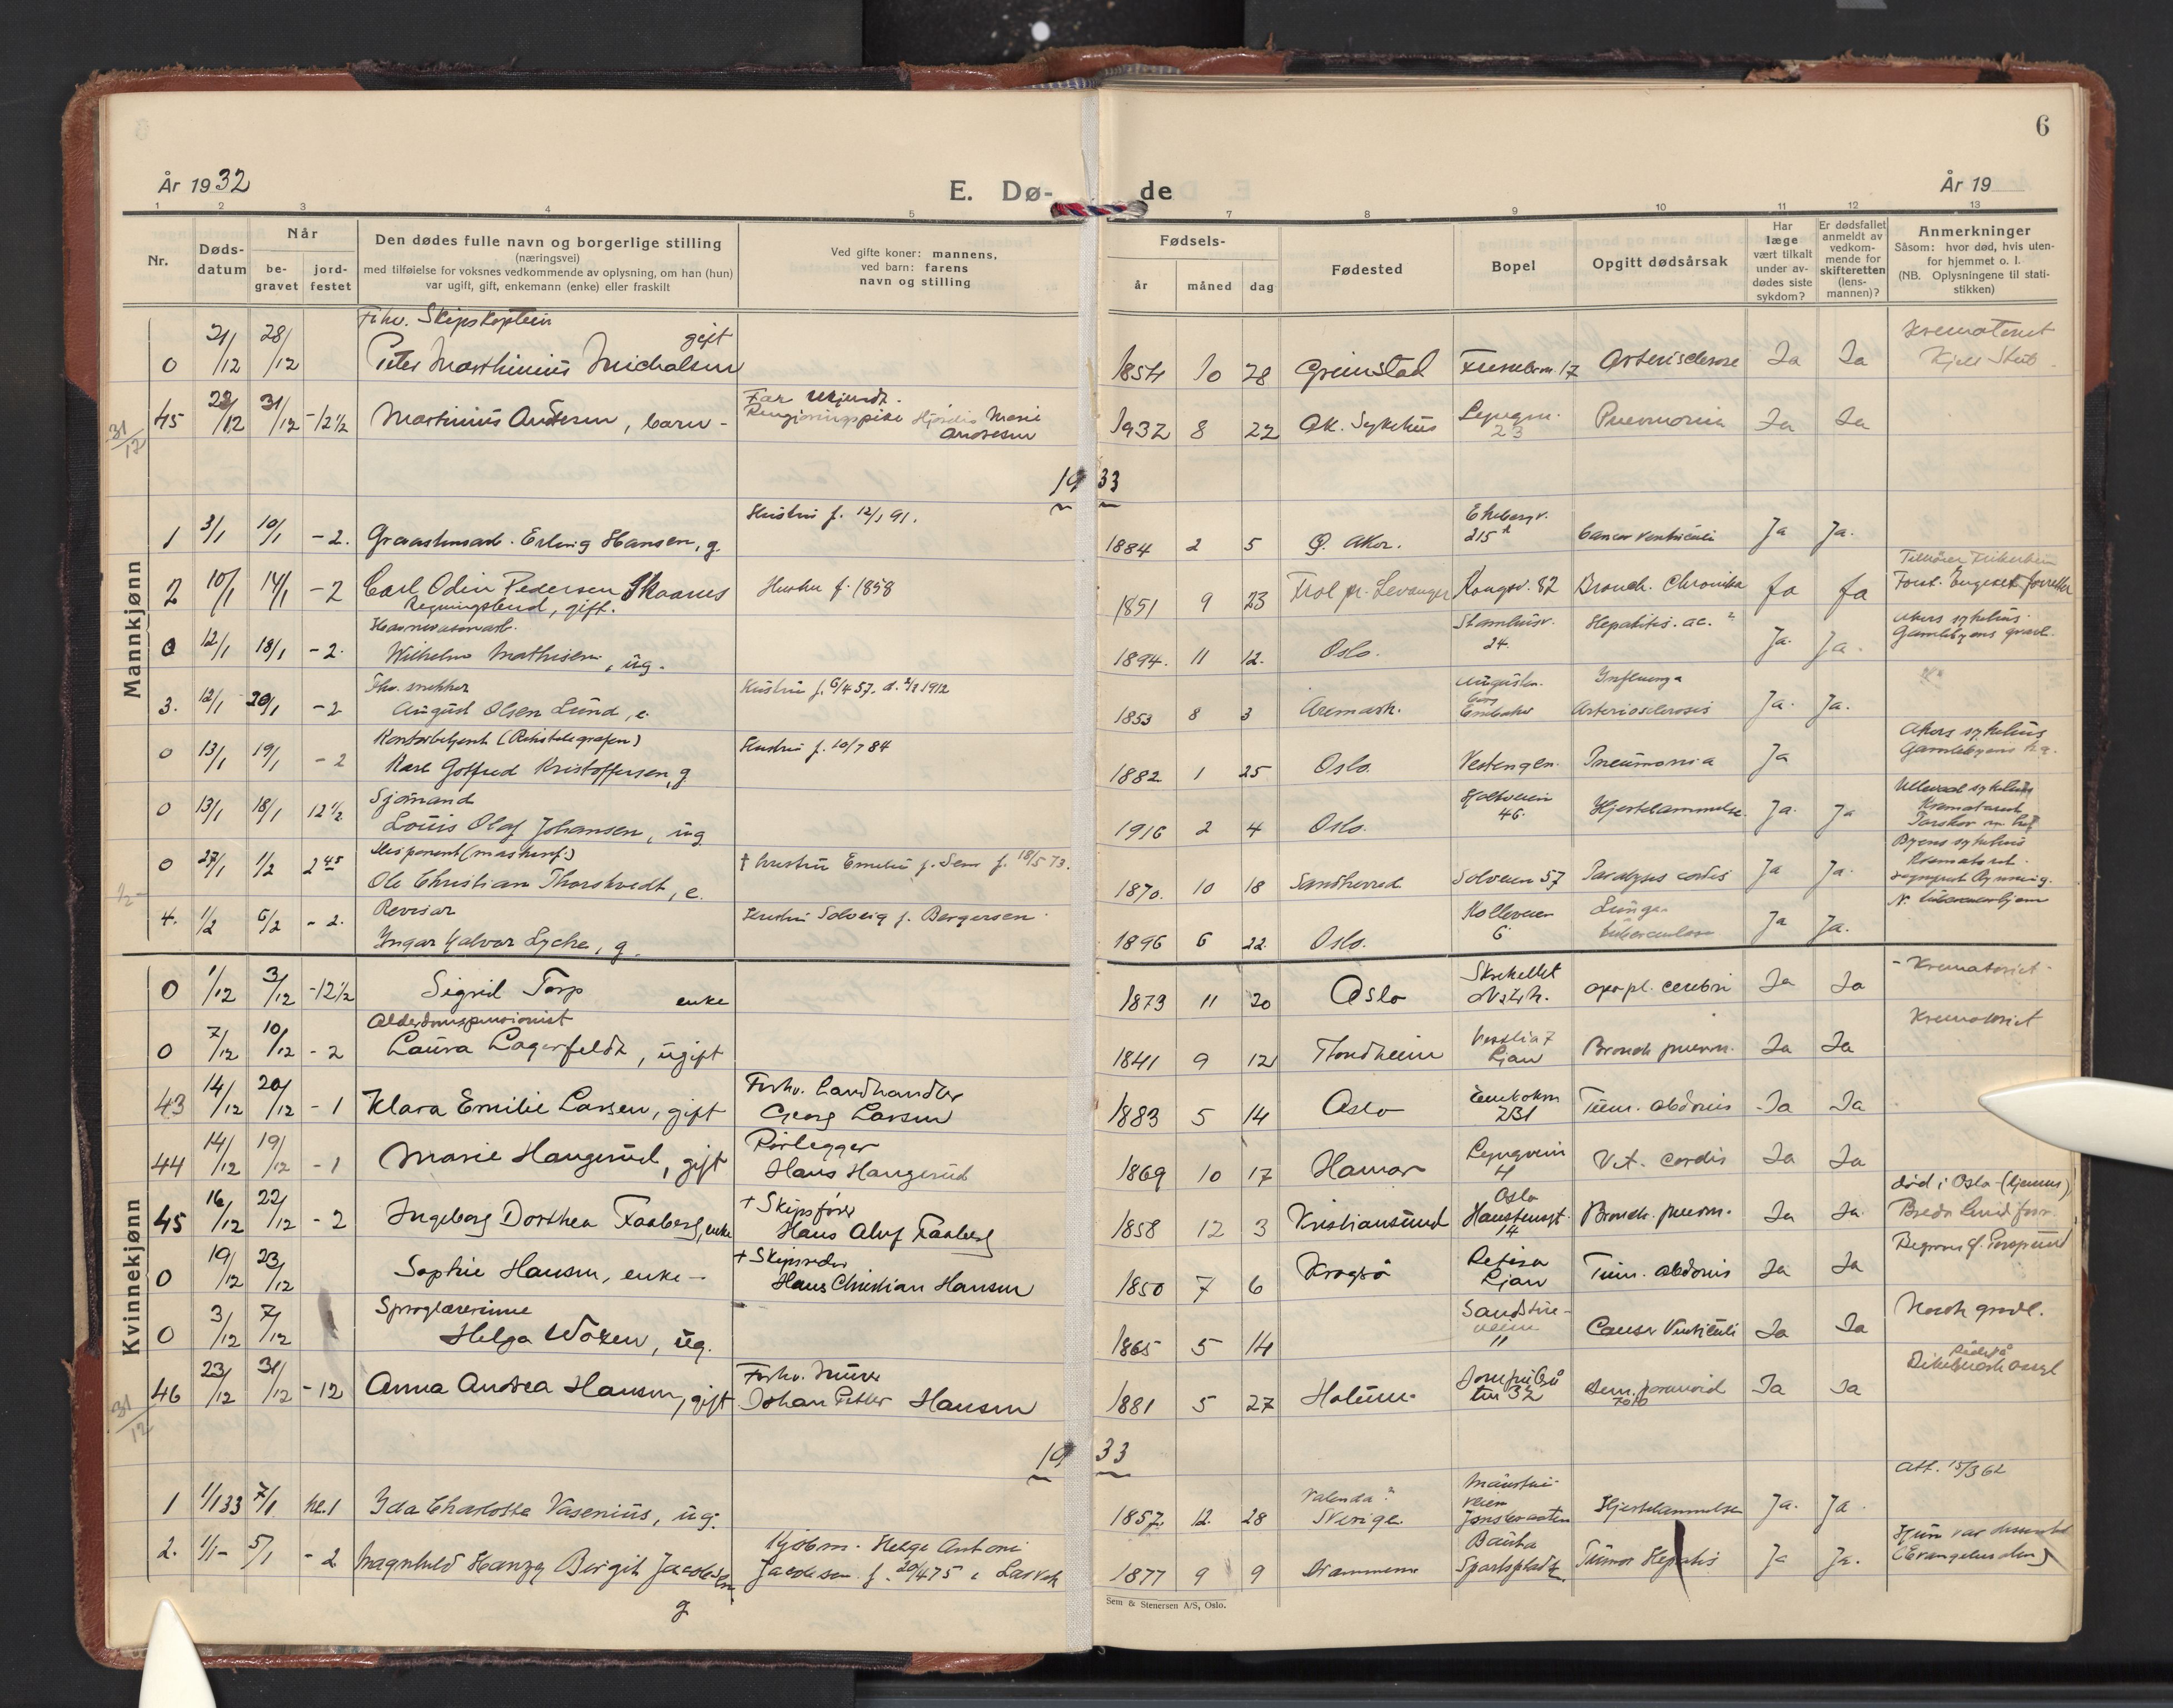 6
År 1932
E. Dø-
de
År 19
1 2 3 4 5 7 8 9 10 11 12 13
Nr.
Døds-
datum
Når
be-
gravet
jord-
festet
Den dødes fulle navn og borgerlige stilling
(næringsvei)
med tilføielse for voksnes vedkommende av oplysning, om han (hun)
var ugift, gift, enkemann (enke) eller fraskilt
Ved gifte koner: mannens,
ved barn: farens
navn og stilling
Fødsels-
år
måned
dag
Fødested
Bopel
Opgitt dødsårsak
Har
læge
vært tilkalt
under av-
dødes siste
sykdom?
Er dødsfallet
anmeldt av
vedkom-
mende for
skifteretten
(lens-
mannen)?
Anmerkninger
Såsom: hvor død, hvis uten-
for hjemmet o. l.
(NB. Oplysningene til stati-
stikken)
Mannkjønn
Fhv. Skipskaptein
gift
0 21/12 28/12 Peter Marthinius Michalsen 1854 10 28 Grimstad 17 Arterisclerose Ja Ja
Krematoriet
31/12
45 22/12 31/12 -12½ Martinius Andersen, barn - 1932 8 22 Ak. Sykehus 23 Pneumonia Ja Ja
Far
Hjørdis Marie
Andersen
1933
Hustru f. 12/1 91.
1 3/1 10/1 -2. Erling Hansen, g. 1884 2 5 Ø. Aker. Ekebergv. 215 Cancer Ventriculi Ja Ja.
2 10/1 14/1 -2 Carl Odin Pedersen Skaanes Hustru f. 1858 1851 9 23 pr. Levanger Kongsv. 82 Bronch. Chronika Ja Ja
Regningsbud, gift.
0 12/1 18/1 -2. Wilhelm Mathisen, ug. 1894. 11 12. Oslo. 24. Hepatitis. ac. Ja. Ja.
Akers sykehus
Gamlebyens gravl.
Fhv. snekker
3. 12/1 20/1 -2 August Olsen Lund, e. 1853 8 3 Aremark. Influenza Arteriosclerosis Ja. Ja.
Hustru f. 6/4 57. d. 1912
Kontorbetjent (Rikstelegrafen)
0 13/1 19/1 -2 Karl Gotfred Kristoffersen, g Hustru f. 10/7 84 1882 1 25 Oslo. Vestengen. Pneumonia Ja
Akers sykehus
Sjømand
0 13/1 18/1 12½ Louis Olaf Johansen, ug 1916 2 4 Oslo. 46. Hjertelammelse. Ja. Ja
Ullevaal sykehus
0 27/1 1/2 2 45 Ole Christian Thorskvedt, e. 1870. 10 18 Sandherred Solveien 57 Paralysis cordis Ja Ja.
Byens sykehus
Revisor
4. 1/2 6/2 -2. Ingar Halvor Lyche, g. Hustru Solveig f. Bergersen 1896 6 22. Oslo. 6 Lunge tuberculose Ja Ja.
Kvinnekjønn
0 1/12 3/12 -12½ Sigrid Torp enke 1873 11 20 Oslo apopl. cerebri Ja Ja
- Krematoriet -
Alderdomspensionist
0 7/12 10/12 -2 Laura Lagerfeldt, ugift 1841 9 12 Trondheim Ljan Bronch. pneum. Ja Ja
Krematoriet
43 14/12 20/12 -1 Klara Emilie Larsen, gift 1883 5 14 Oslo 231 Tum. abdomis Ja Ja
Forhv. Landhandler
Georg Larsen
44 14/12 19/12 -1 Marie Haugerud, gift 1869 10 17 Hamar 4 Vit. Cordis Ja Ja
Rørlegger
Hans Haugerud
45 16/12 22/12 -2 Ingeborg Dorthea Faaberg, enke 1858 12 3 Kristiansund Oslo 14 Bronch. pneum. Ja Ja
+ Skipsfører
Hans Aluf Faaberg
død i Oslo
0 19/12 23/12 Sophie Hansen, enke - 1850 7 6 Kragerø Ljan Tum. abdomis Ja Ja
+ Skipsreder
Hans Christian Hansen
Sproglærerinne
0 3/12 7/12 Helga Woxen, ug. 1865 5 14 11 Cancer Ventriculi Ja Ja
31/12
46 23/12 31/12 -12 Anna Andrea Hansen, gift 1881 5 27 Ja Ja
Forhv. Murer
Johan Petter Hansen
1933
Att. 15/3 62
1 1/1 33 7/1 kl. 1 Ida Charlotte Vasenius, ug. 1857. 12. 28 Sverige. Hjertelammelse Ja. Ja.
2. 1/1- 5/1 -2 Magnhild Hanzy Birgit Jacobsen g 1877 9 9 Drammen Sportsplads. Tumor Hepatis Ja Ja.
Kjøbm. Helge Antoni
Jacobsen f. 20/4 75 i Larvik
Sem & Stenersen A/S, Oslo.